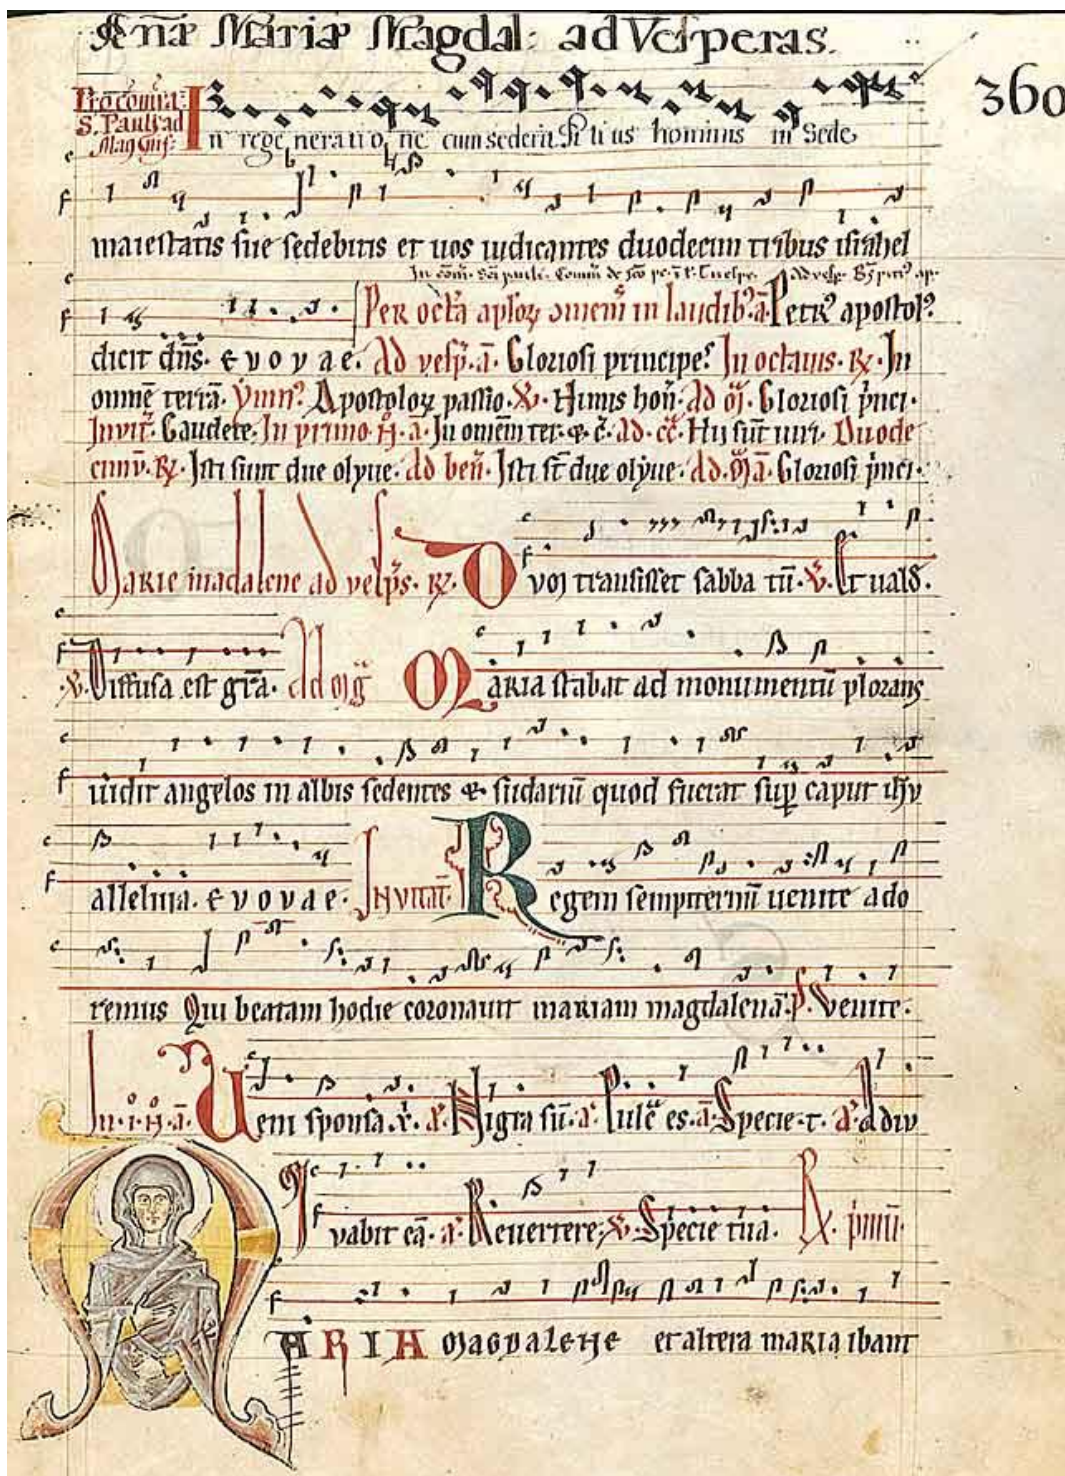 Mariæ Magdal: ad Vesperas.
360
S. Pauli ad
In regeneratione cum sederit Filius hominis in Sede
maiestatis sue sedebitis et uos iudicantes duodecim tribus israhel
dicit dn̄s. e v o v a e. Ad vesp̄. ā. Gloriosi principes In octauis. ℟. In
Per octā aplōꝝ in laudib? ā. Petr? apostol?
omnē terrā. ymn? Apostoloꝝ passio. ℣. Hymnis hon̄. ad Gloriosi p̄nci.
Inuit. Gaudete. In primo ā. In omnem ter. Hii sūt uiri. Duode
℟. Isti sunt due olyue. ad ben̄. Isti st̄ due olyue. ad Gloriosi p̄nci.
Marie madalene ad vesp̄s. ℟. Dvm transisset sabbatū. ℣. Et uald.
℣. Diffusa est gr̄a. Ad mḡ Maria stabat ad monumentū plorans
uidit angelos in albis sedentes & sudariū quod fuerat sup̄ caput ihv
alleluia. e v o v a e. Invitat̄. Regem sempiternū uenite ado
remus Qui beatam hodie coronauit mariam magdalenā. p̄. Venite.
In .i. ā. Ueni sponsa. Nigra sū. Pulc̄ es. ā. Specie. t. Adiu
vabit eā. Reuertere. ℣. Specie tua. ℟. p̄mū.
MARIA MAGDALENE et altera maria ibant